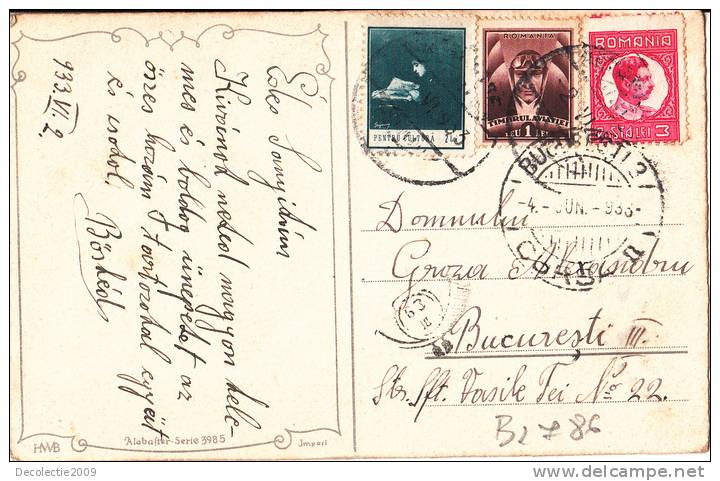 Édes Sanyikám
Kivánok neked nagyon kelle-
mes és boldog ünnepeket az
összes hozzám tartozókkal együtt
és csókol.
933. VI. 2.
HWB
Alabaster-Serie 3985
Import
PENTRU CULTURA
ROMANIA
TIMBRUL AVIATIEI
LEU 1 LEU
ROMANIA
POSTA LEI 3
BUCUREȘTI 2
-4.- JUN. -933-
Domnului
Groza Alexandru
București III.
Str. Sft. Vasile Tei No 22.
B2 7 86
Decolectie2009
delcampe.net